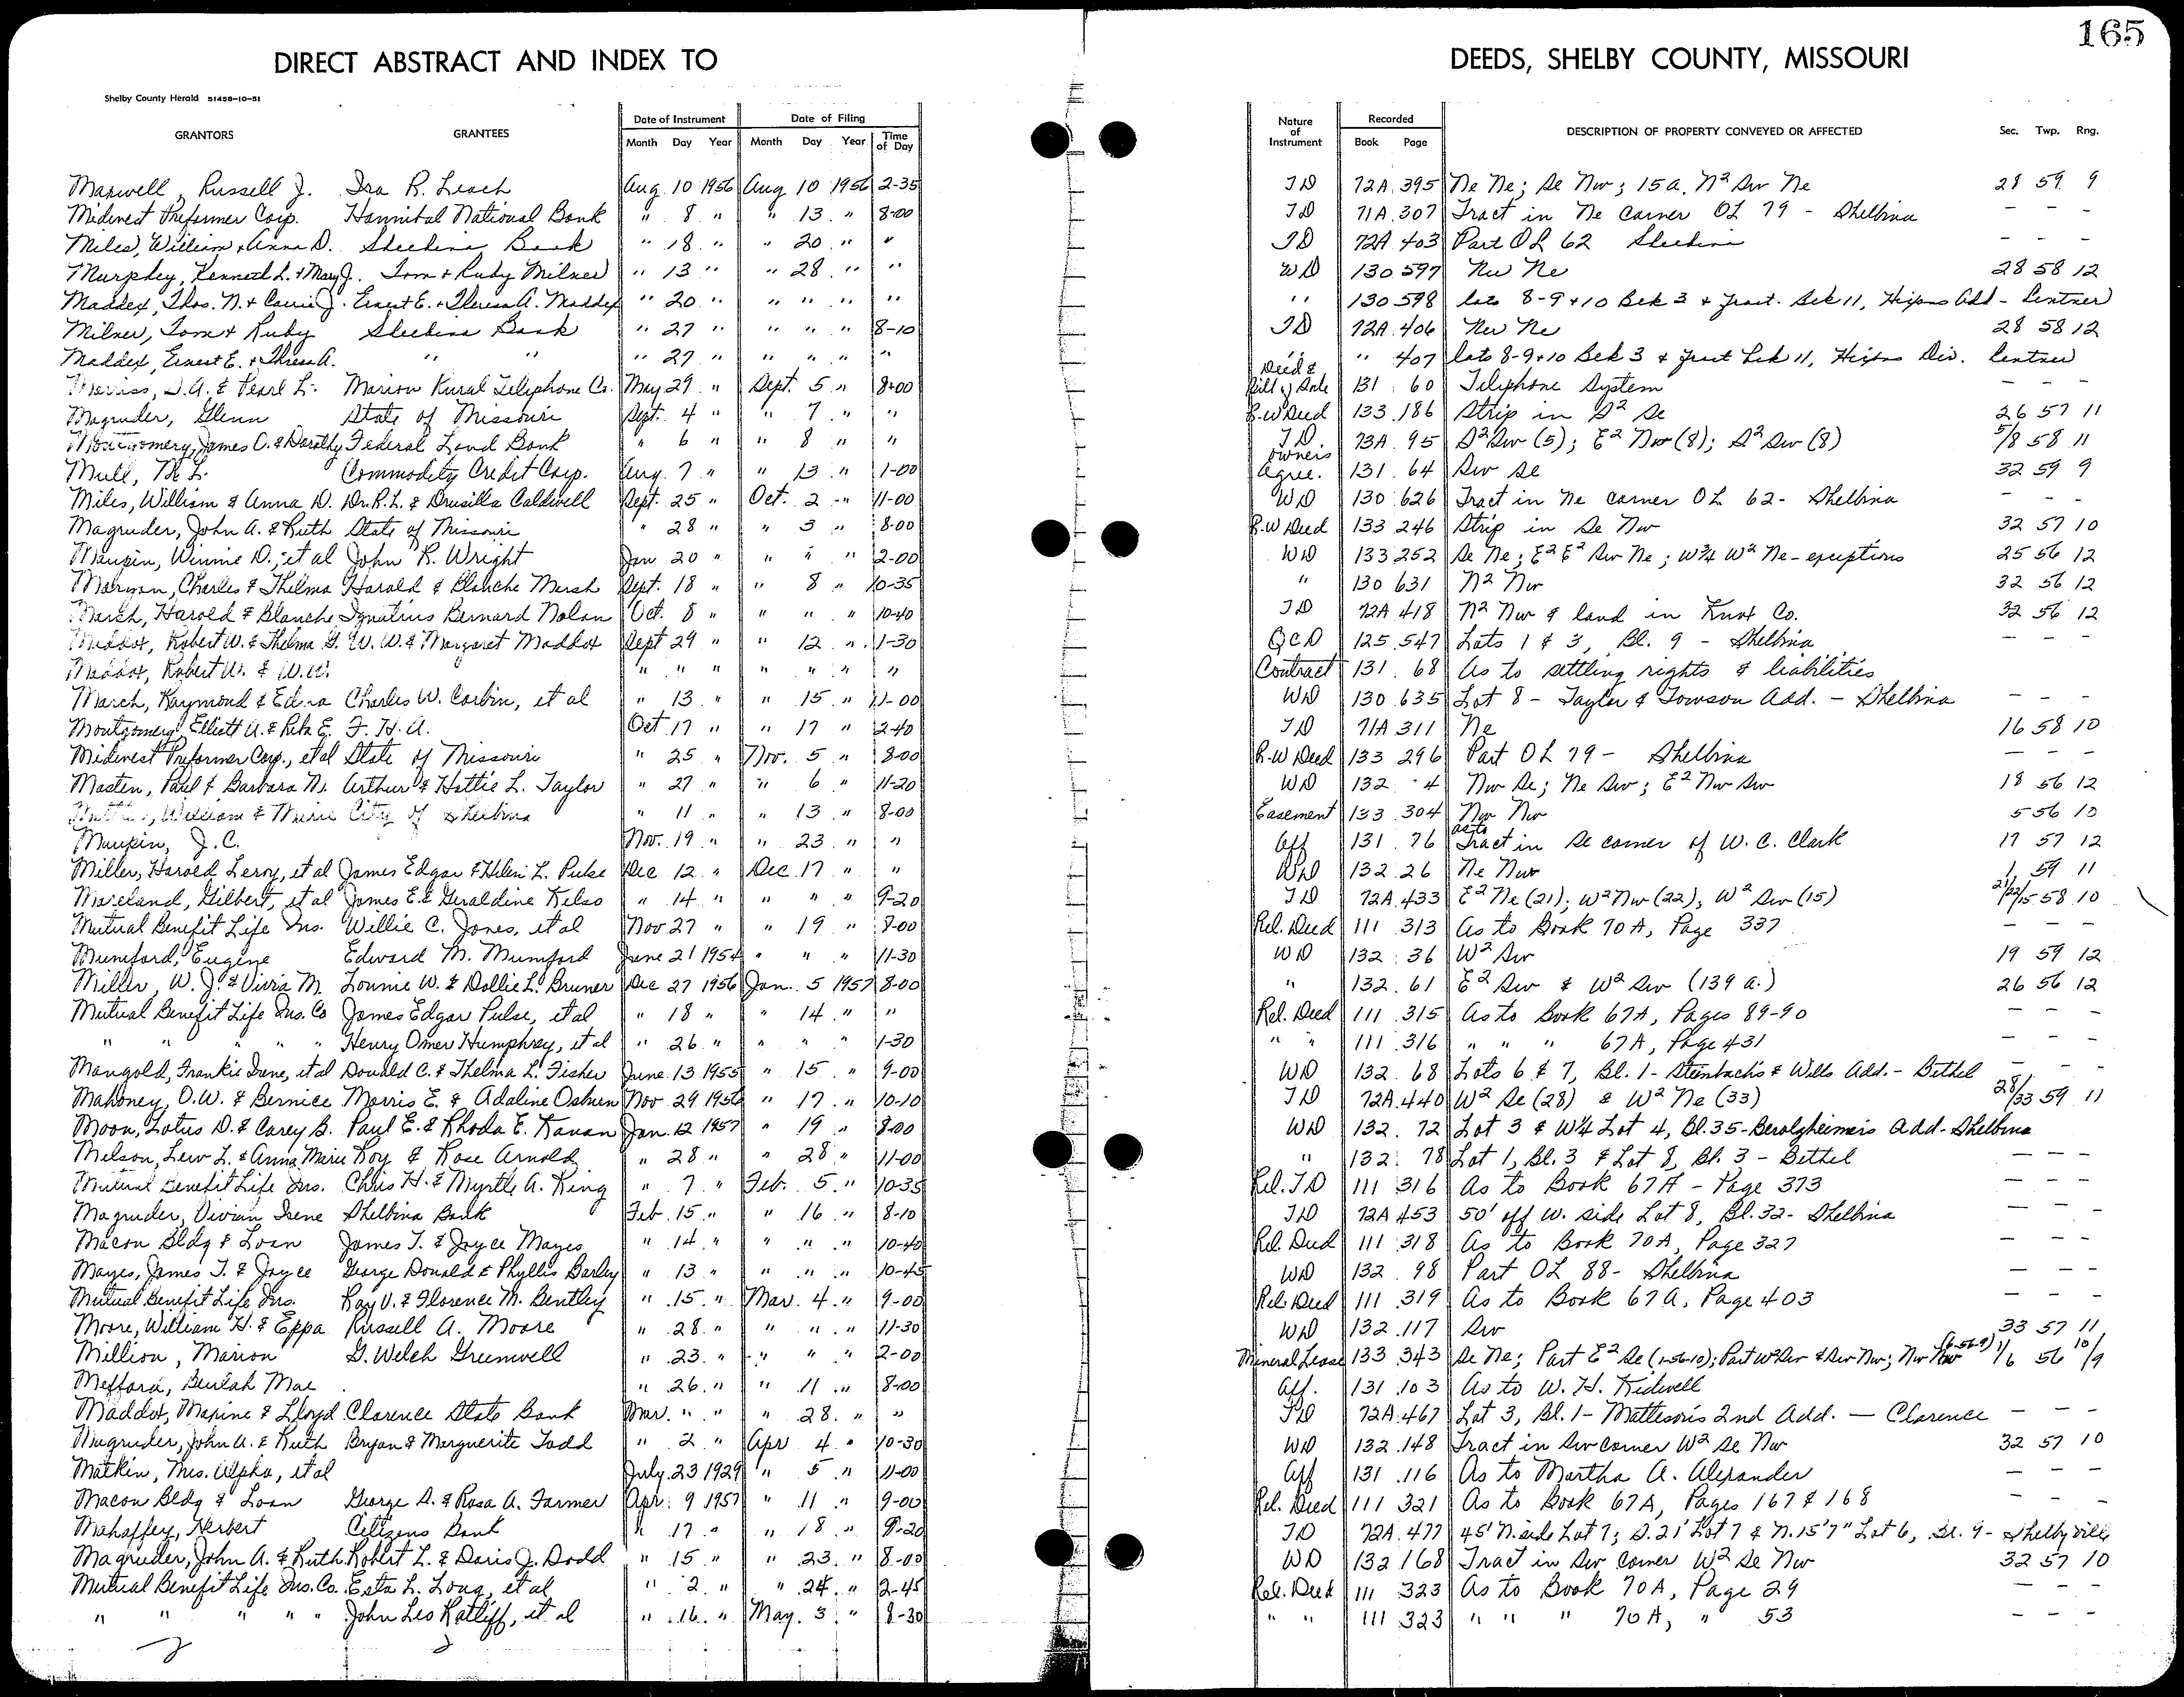 165
DIRECT ABSTRACT AND INDEX TO DEEDS, SHELBY COUNTY, MISSOURI
Shelby County Herald 51458-10-51
GRANTORS GRANTEES Date of Instrument Month Day Year Date of Filing Month Day Year Time of Day Nature of Instrument Recorded Book Page DESCRIPTION OF PROPERTY CONVEYED OR AFFECTED Sec. Twp. Rng.
Maxwell, Russell J. Ira R. Leach Aug. 10 1956 Aug 10 1956 2-35 TD 72A 395 Ne Ne; Se Nw; 15a. N² Sw Ne 28 59 9
Midwest Preformer Corp. Hannibal National Bank " 8 " " 13 " 8-00 TD 71A 307 Tract in Ne corner OL 79 - Shelbina - - -
Miles, William & Anna D. Shelbina Bank " 18 " " 20 " " TD 72A 403 Part OL 62 Shelbina - - -
Murphey, Kenneth L. & May J. Tom & Ruby Milner " 13 " " 28 " " WD 130 597 Nw Ne 28 58 12
Maddex, Thos. N. & Carrie J. Ernest E. & Theresa A. Maddex " 20 " " " " " " 130 598 lots 8-9 & 10 Bck 3 & Fract. Bck 11, Hixons Add - Lentner
Milner, Tom & Ruby Shelbina Bank " 27 " " " " 8-10 TD 72A 406 Nw Ne 28 58 12
Maddex, Ernest E. & Thresa A. " " " 27 " " " " " " " 407 lots 8-9 & 10 Bck 3 & Fract Bck 11, Hixons Div. Lentner
S. A. & Pearl L. Marion Rural Telephone Co. May 29 " Sept. 5 " 8-00 Deed & Bill of Sale 131 60 Telephone System - - -
Magruder, Glenn State of Missouri Sept. 4 " " 7 " " R.W Deed 133 186 Strip in S² Se 26 57 11
Montgomery, James C. & Dorothy Federal Land Bank " 6 " " 8 " " TD. 73A 95 S² Sw (5); E² Nw (8); S² Sw (8) 5/8 58 11
Mull, M. L. Commodity Credit Corp. Aug. 7 " " 13 " 1-00 owners Agree. 131 64 Sw Se 32 59 9
Miles, William & Anna D. Dr. R. L. & Drusilla Caldwell Sept. 25 " Oct. 2 " 11-00 WD 130 626 Tract in Ne corner OL 62 - Shelbina - - -
Magruder, John A. & Ruth State of Missouri " 28 " " 3 " 8-00 R.W Deed 133 246 Strip in Se Nw 32 57 10
Maupin, Winnie D., et al John R. Wright Jan 20 " " " " 2-00 WD 133 252 Se Ne; E² E² Sw Ne; W¾ W² Ne - exceptions 25 56 12
Charles & Thelma Harold & Blanche Marsh Sept. 18 " " 8 " 10-35 " 130 631 N² Nw 32 56 12
March, Harold & Blanche Ignatius Bernard Nolan Oct. 8 " " " " 10-40 TD 72A 418 N² Nw & land in Knox Co. 32 56 12
Maddox, Robert W. & Thelma G. W. W. & Margaret Maddox Sept 29 " " 12 " 1-30 QCD 125 547 Lots 1 & 3, Bl. 9 - Shelbina - - -
Maddox, Robert W. & W.W. " " " " " " " Contract 131 68 As to settling rights & liabilities
March, Raymond & Edna Charles W. Corbin, et al " 13 " " 15 " 11-00 WD 130 635 Lot 8 - Taylor & Towson Add. - Shelbina - - -
Montgomery, Elliott A. & Reta E. F. H. A. Oct 17 " " 17 " 2-40 TD 71A 311 Ne 16 58 10
Midwest Preformer Corp., et al State of Missouri " 25 " Nov. 5 " 8-00 R.W Deed 133 296 Part OL 79 - Shelbina - - -
Masten, Paul & Barbara N. Arthur & Hattie L. Taylor " 27 " " 6 " 11-20 WD 132 4 Nw Se; Ne Sw; E² Nw Sw 18 56 12
William & Marie City of Shelbina " 11 " " 13 " 8-00 Easement 133 304 Nw Nw 5 56 10
Maupin, J. C. Nov. 19 " " 23 " " Aff 131 76 as to Tract in Se corner of W. C. Clark 17 57 12
Miller, Harold Leroy, et al James Edgar & Helen L. Pulse Dec 12 " Dec. 17 " " WD 132 26 Ne Nw 1 59 11
Moreland, Gilbert, et al James E. & Geraldine Kelso " 14 " " " " 9-20 TD 72A 433 E² Ne (21); W² Nw (22); W² Sw (15) 21/22/15 58 10
Mutual Benefit Life Ins. Willie C. Jones, et al Nov 27 " " 19 " 8-00 Rel. Deed 111 313 As to Book 70A, Page 337 - - -
Mumford, Eugene Edward M. Mumford June 21 1954 " " " 11-30 WD 132 36 W² Sw 19 59 12
Miller, W. J. & Vivia M. Lonnie W. & Dollie L. Bruner Dec 27 1956 Jan. 5 1957 8-00 " 132 61 E² Sw & W² Sw (139 a.) 26 56 12
Mutual Benefit Life Ins. Co James Edgar Pulse, et al " 18 " " 14 " " Rel. Deed 111 315 As to Book 67A, Pages 89-90 - - -
" " " " " Henry Omer Humphrey, et al " 26 " " " " 1-30 " " 111 316 " " " 67A, Page 431 - - -
Mangold, Frankie Irene, et al Donald C. & Thelma L. Fisher June 13 1955 " 15 " 9-00 WD 132 68 Lots 6 & 7, Bl. 1 - Steinbachs & Wills Add. - Bethel - - -
Mahoney, O.W. & Bernice Morris E. & Adaline Osburn Nov 29 1956 " 17 " 10-10 TD 72A 440 W² Se (28) & W² Ne (33) 28/33 59 11
Moon, Lotus D. & Carey B. Paul E. & Rhoda E. Kauan Jan. 12 1957 " 19 " 8-00 WD 132 72 Lot 3 & W¼ Lot 4, Bl. 35 - Berolzheimers Add - Shelbina
Melson, Lew L. & Anna Marie Roy & Rose Arnold " 28 " " 28 " 11-00 " 132 78 Lot 1, Bl. 3 & Lot 8, Bl. 3 - Bethel - - -
Mutual Benefit Life Ins. Chris H. & Myrtle A. King " 7 " Feb. 5 " 10-35 Rel. TD 111 316 As to Book 67A - Page 373 - - -
Magruder, Vivian Irene Shelbina Bank Feb. 15 " " 16 " 8-10 TD 72A 453 50' off W. side Lot 8, Bl. 32 - Shelbina - - -
Macon Bldg & Loan James T. & Joyce Mayes " 14 " " " " 10-40 Rel. Deed 111 318 As to Book 70A, Page 327 - - -
Mayes, James T. & Joyce George Donald & Phyllis Barley " 13 " " " " 10-45 WD 132 98 Part OL 88 - Shelbina - - -
Mutual Benefit Life Ins. Ray V. & Florence M. Bentley " 15 " Mar. 4 " 9-00 Rel. Deed 111 319 As to Book 67A, Page 403 - - -
Moore, William H. & Eppa Russell A. Moore " 28 " " " " 11-30 WD 132 117 Sw 33 57 11
Million, Marion G. Welch Greenwell " 23 " " " " 2-00 Mineral Lease 133 343 Se Ne; Part E² Se (1-56-10); Part W² Sw & Sw Nw; Nw Nw (6-56-9) 1/6 56 10/9
Mefford, Beulah Mae " 26 " " 11 " 8-00 Aff. 131 103 As to W. H. Kidwell - - -
Maddox, Maxine & Lloyd Clarence State Bank Mar. " " " 28 " " TD 72A 467 Lot 3, Bl. 1 - Mattesons 2nd Add. - Clarence - - -
Magruder, John A. & Ruth Bryan & Marguerite Todd " 2 " Apr 4 " 10-30 WD 132 148 Tract in Sw corner W² Se Nw 32 57 10
Matkin, Mrs. Alpha, et al July 23 1929 " 5 " 11-00 Aff 131 116 As to Martha A. Alexander - - -
Macon Bldg & Loan George S. & Rosa A. Farmer Apr. 9 1957 " 11 " 9-00 Rel. Deed 111 321 As to Book 67A, Pages 167 & 168 - - -
Mahaffey, Herbert Citizens Bank " 17 " " 18 " 9-20 TD 72A 477 45' N. side Lot 7; S. 21' Lot 7 & N. 15'7" Lot 6, Bl. 9 - Shelbyville
Magruder, John A. & Ruth Robert L. & Doris J. Dodd " 15 " " 23 " 8-00 WD 132 168 Tract in Sw corner W² Se Nw 32 57 10
Mutual Benefit Life Ins. Co. Esta L. Long, et al " 2 " " 24 " 2-45 Rel. Deed 111 323 As to Book 70A, Page 29 - - -
" " " " " John Leo Ratliff, et al " 16 " May. 3 " 8-30 " " 111 323 " " " 70A, " 53 - - -